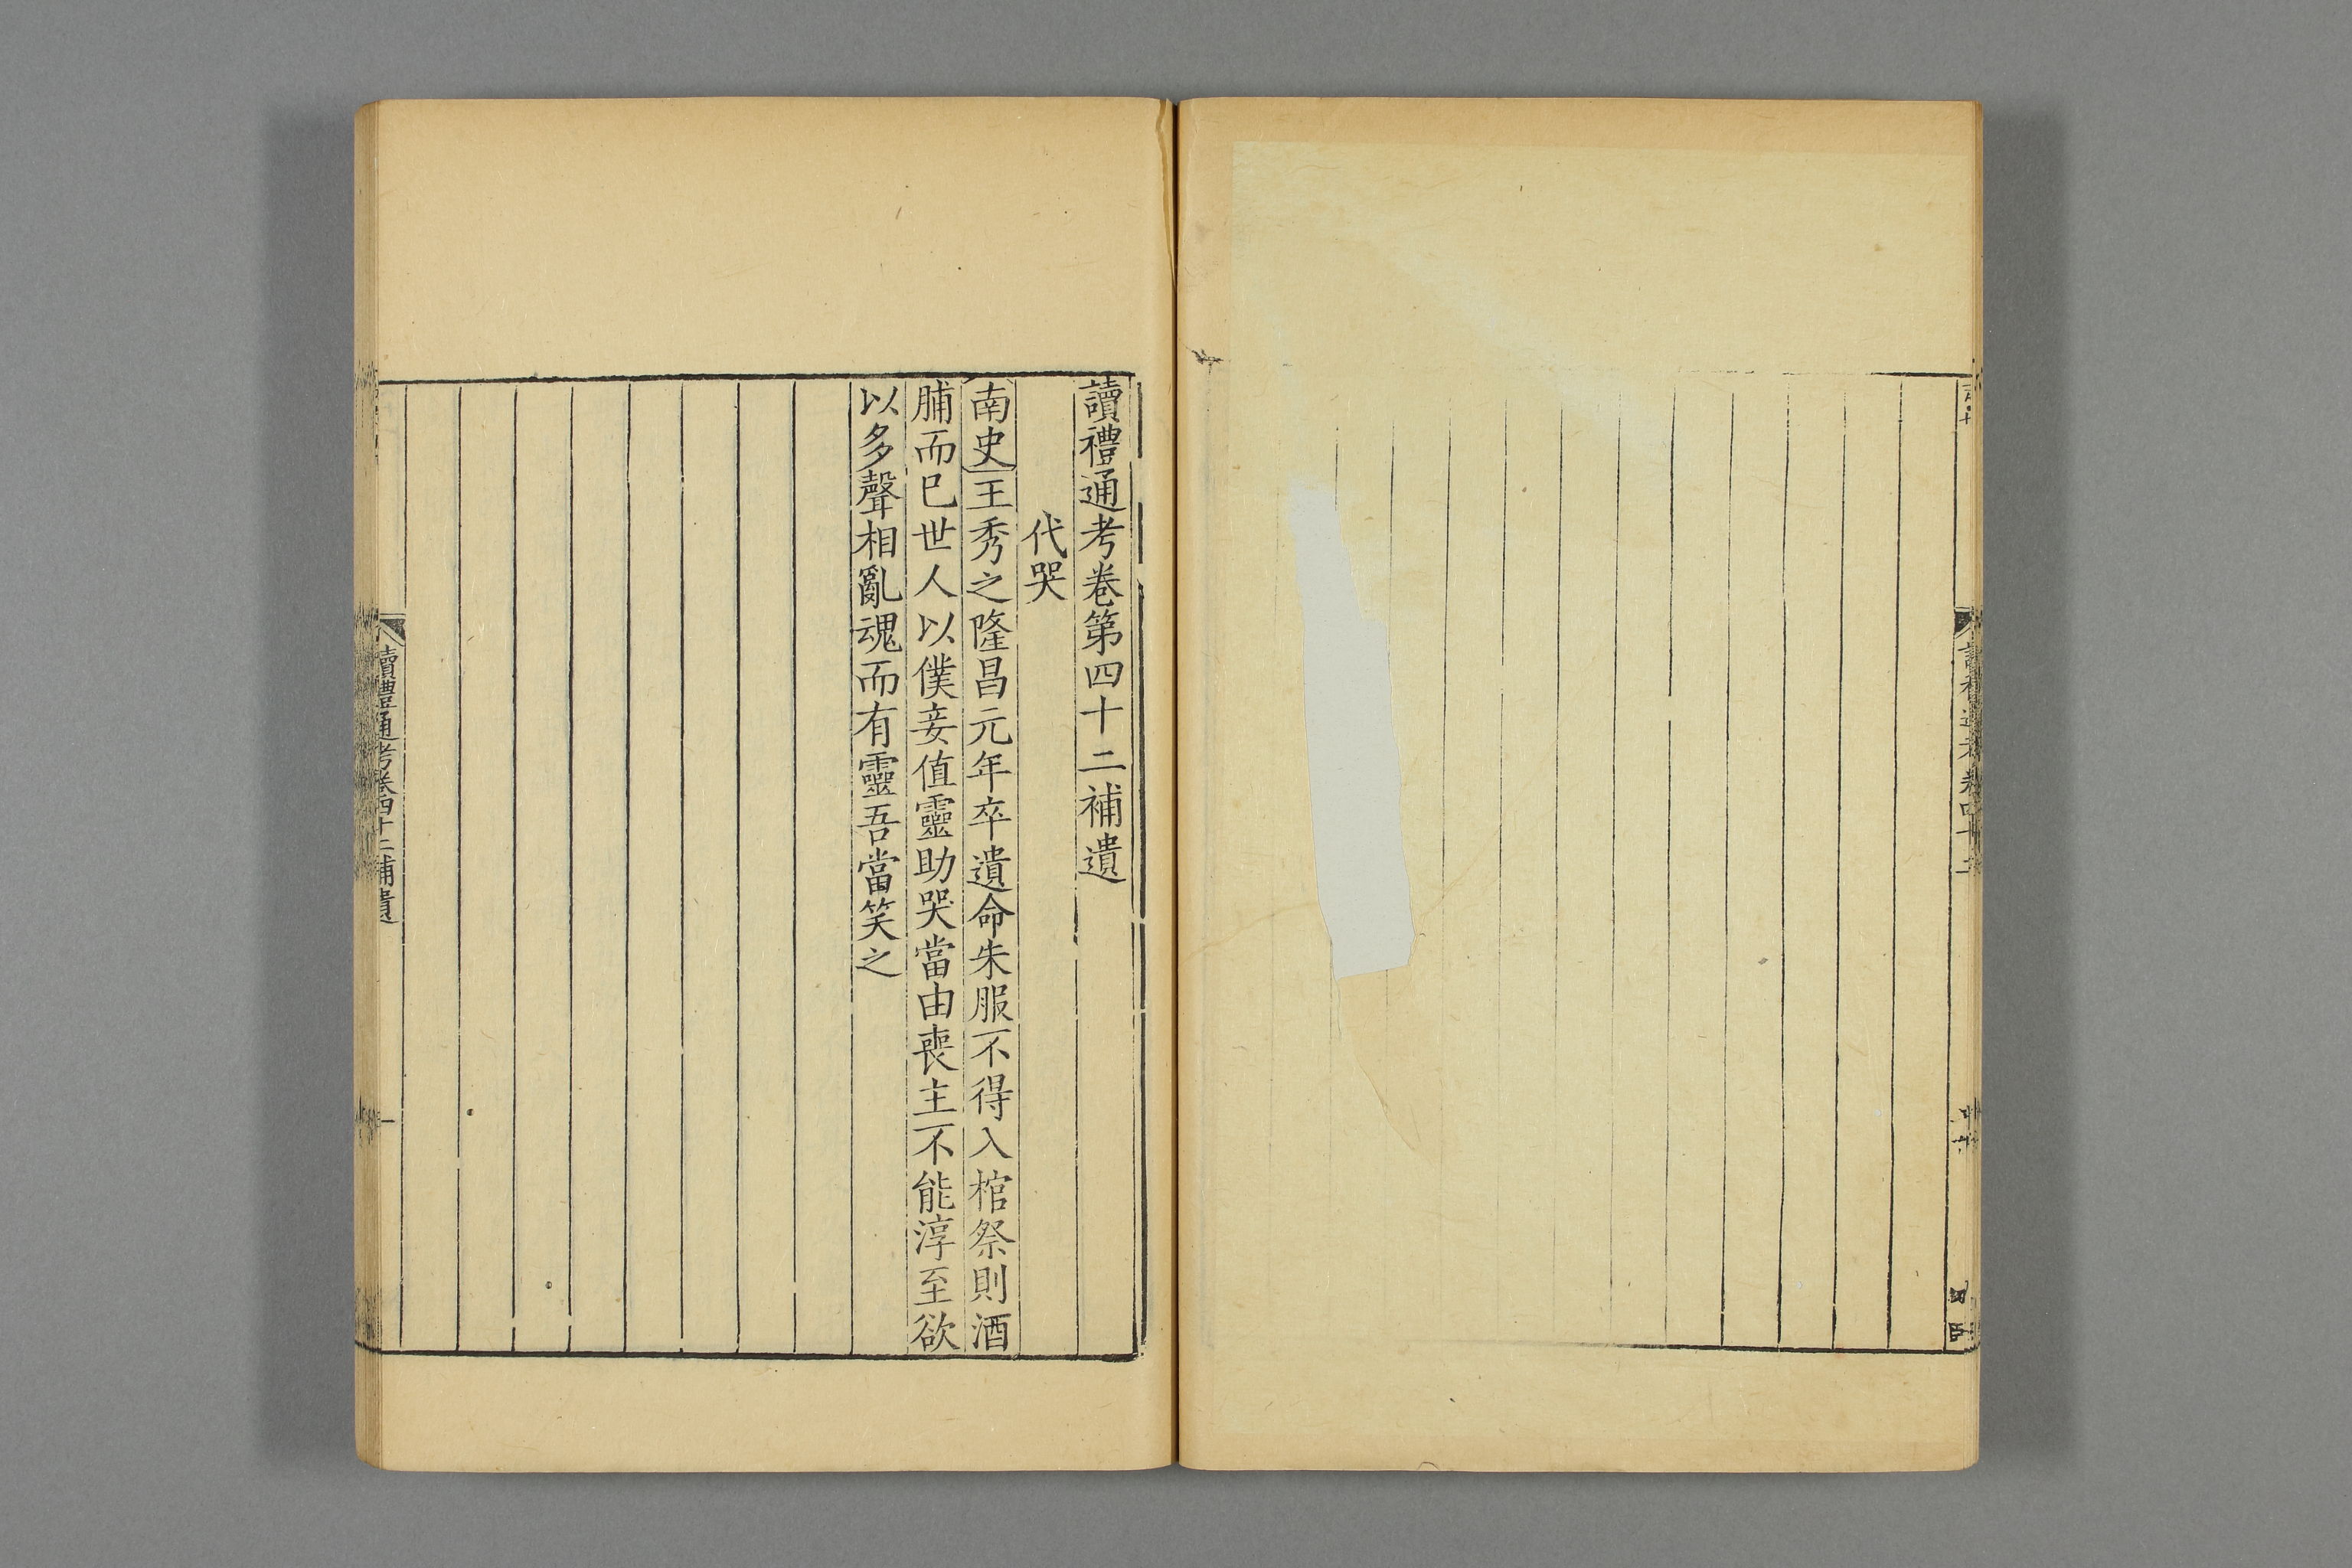 讀禮通考卷第四十二補遺
代哭
南史王秀之隆昌元年卒遺命朱服不得入棺祭則酒
脯而巳世人以僕妾值靈助哭當由喪主不能淳至欲
以多聲相亂魂而有靈吾當笑之
讀禮通考卷四十二補遺
一